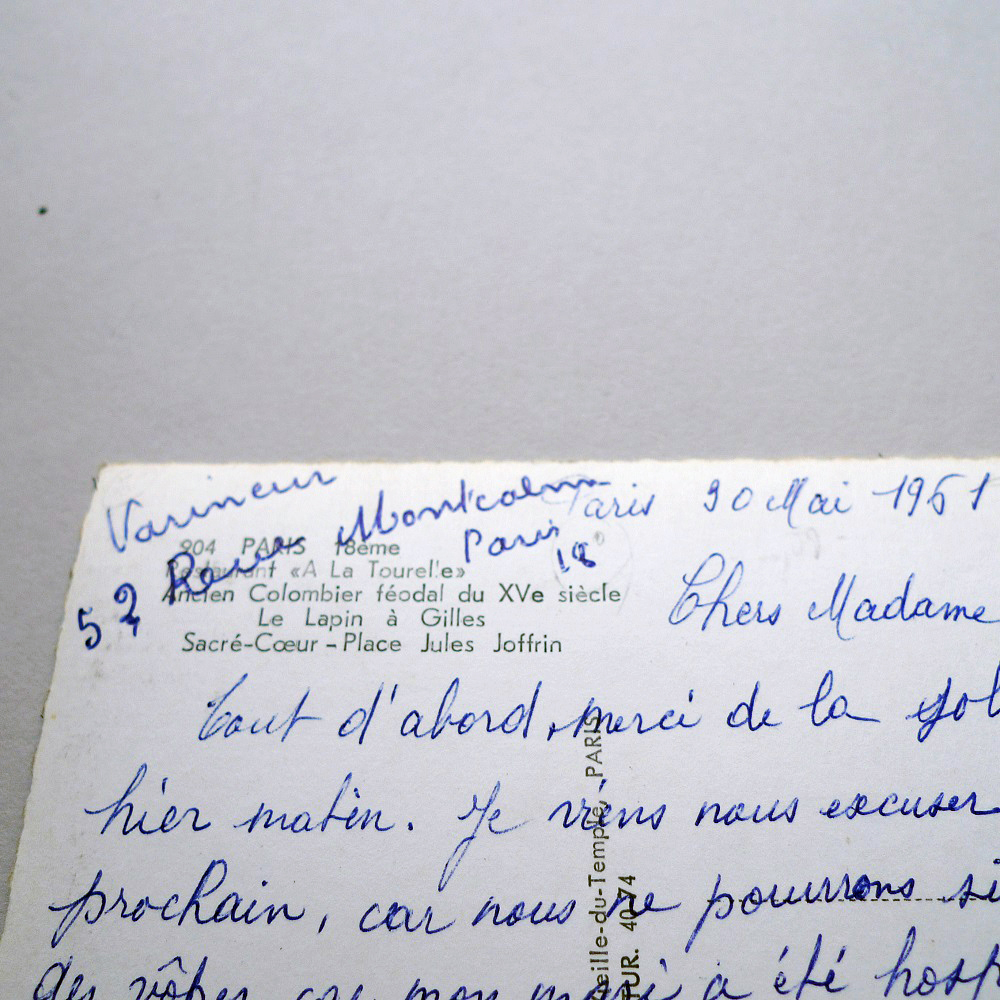 Varineur
52 Rue Montcalm
Paris 18°
Paris 30 Mai 1961
904 PARIS 18ème
Restaurant «A La Tourelle»
Ancien Colombier féodal du XVe siècle
Le Lapin à Gilles
Sacré-Cœur – Place Jules Joffrin
Chers Madame
Tout d'abord, merci de la jol
hier matin. Je viens nous excuser
prochain, car nous ne pourrons si
des vôtres, car mon mari a été hosp
eille-du-Temple, PARIS
TUR. 40-74